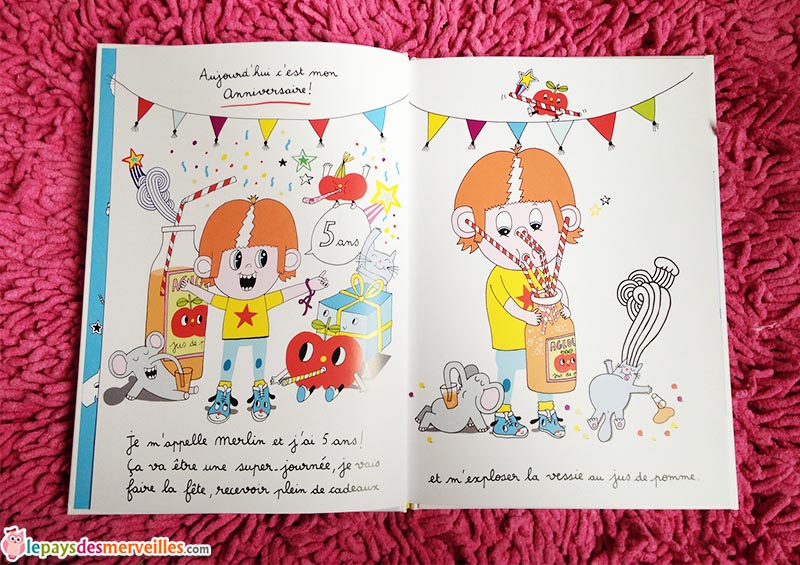 Aujourd'hui c'est mon
Anniversaire!
5 ans
jus de
jus de
Je m'appelle Merlin et j'ai 5 ans!
Ça va être une super-journée, je vais
faire la fête, recevoir plein de cadeaux
et m'exploser la vessie au jus de pomme.
lepaysdesmerveilles.com